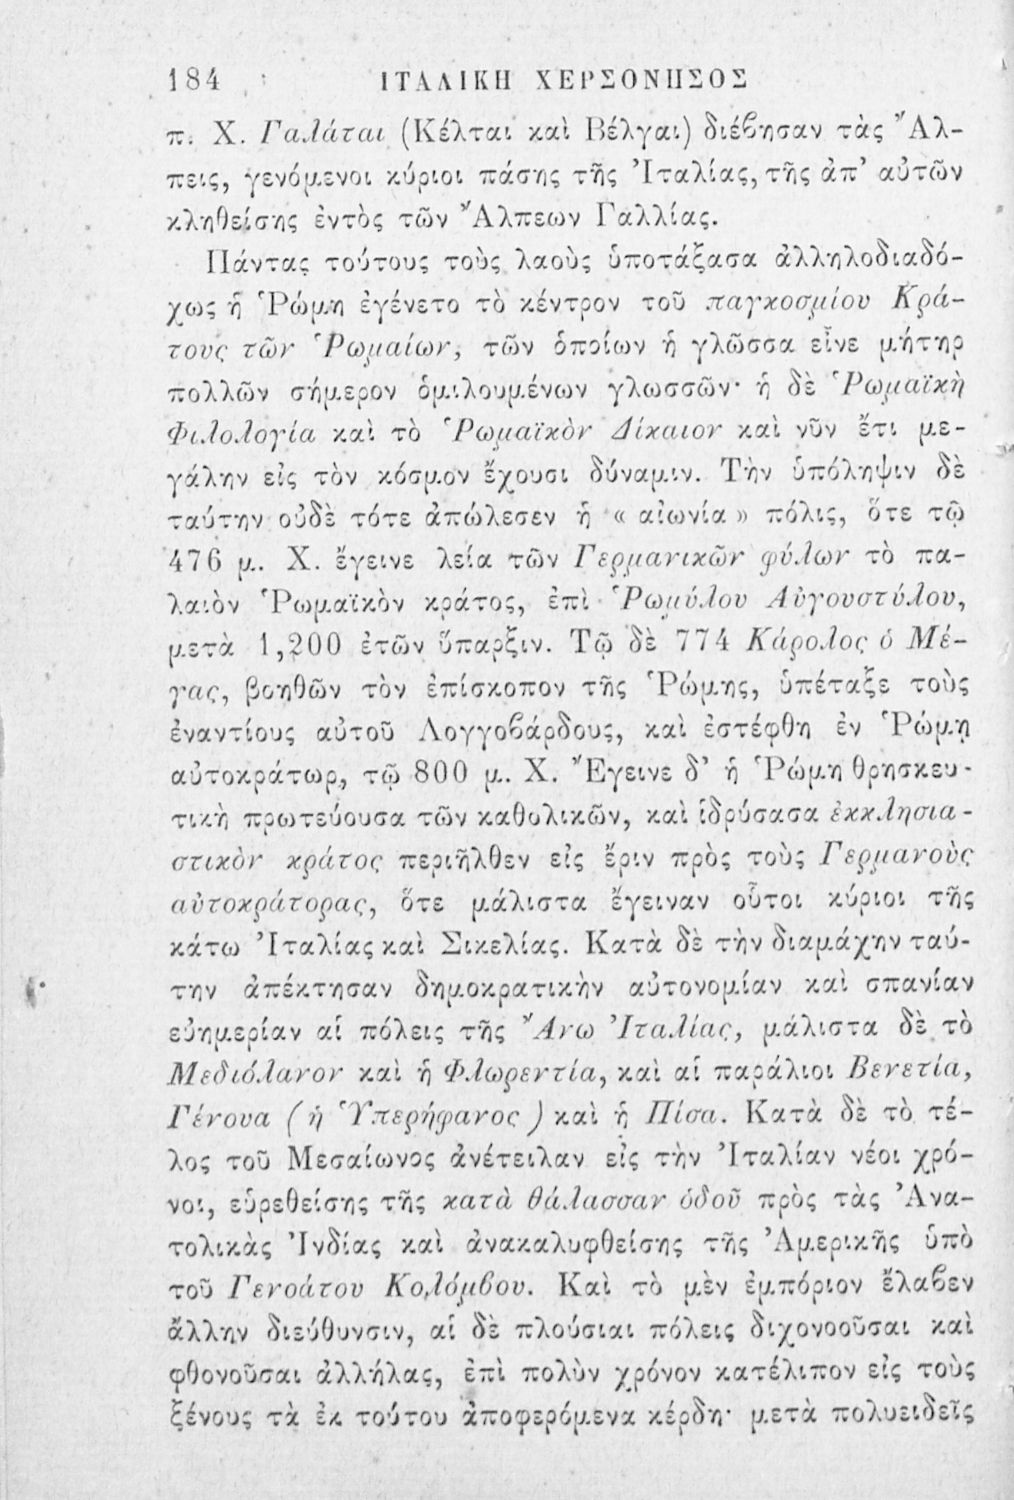 184 ΙΤΑΛΙΚΗ ΧΕΡΣΟΝΗΣΟΣ
π. Χ. Γαλάται (Κέλται καὶ Βέλγαι) διέβησαν τὰς Ἄλ-
πεις, γενόμενοι κύριοι πάσης τῆς Ἰταλίας, τῆς ἀπ’ αὐτῶν
κληθείσης ἐντὸς τῶν Ἄλπεων Γαλλίας.
Πάντας τούτους τοὺς λαοὺς ὑποτάξασα ἀλληλοδιαδό-
χως ἡ Ῥώμη ἐγένετο τὸ κέντρον τοῦ παγκοσμίου Κρά-
τους τῶν Ῥωμαίων, τῶν ὁποίων ἡ γλῶσσα εἶνε μήτηρ
πολλῶν σήμερον ὁμιλουμένων γλωσσῶν· ἡ δὲ Ῥωμαϊκὴ
Φιλολογία καὶ τὸ Ῥωμαϊκὸν Δίκαιον καὶ νῦν ἔτι με-
γάλην εἰς τὸν κόσμον ἔχουσι δύναμιν. Τὴν ὑπόληψιν δὲ
ταύτην οὐδὲ τότε ἀπώλεσεν ἡ « αἰωνία » πόλις, ὅτε τῷ
476 μ. Χ. ἔγεινε λεία τῶν Γερμανικῶν φύλων τὸ πα-
λαιὸν Ῥωμαϊκὸν κράτος, ἐπὶ Ῥωμύλου Αὐγουστύλου,
μετὰ 1,200 ἐτῶν ὕπαρξιν. Τῷ δὲ 774 Κάρολος ὁ Μέ-
γας, βοηθῶν τὸν ἐπίσκοπον τῆς Ῥώμης, ὑπέταξε τοὺς
ἐναντίους αὐτοῦ Λογγοβάρδους, καὶ ἐστέφθη ἐν Ῥώμῃ
αὐτοκράτωρ, τῷ 800 μ. Χ. Ἔγεινε δ’ ἡ Ῥώμη θρησκευ-
τικὴ πρωτεύουσα τῶν καθολικῶν, καὶ ἱδρύσασα ἐκκλησια-
στικὸν κράτος περιῆλθεν εἰς ἔριν πρὸς τοὺς Γερμανοὺς
αὐτοκράτορας, ὅτε μάλιστα ἔγειναν οὗτοι κύριοι τῆς
κάτω Ἰταλίας καὶ Σικελίας. Κατὰ δὲ τὴν διαμάχην ταύ-
την ἀπέκτησαν δημοκρατικὴν αὐτονομίαν καὶ σπανίαν
εὐημερίαν αἱ πόλεις τῆς Ἄνω Ἰταλίας, μάλιστα δὲ τὸ
Μεδιόλανον καὶ ἡ Φλωρεντία, καὶ αἱ παράλιοι Βενετία,
Γένουα ( ἡ Ὑπερήφανος ) καὶ ἡ Πίσα. Κατὰ δὲ τὸ τέ-
λος τοῦ Μεσαίωνος ἀνέτειλαν εἰς τὴν Ἰταλίαν νέοι χρό-
νοι, εὑρεθείσης τῆς κατὰ θάλασσαν ὁδοῦ πρὸς τὰς Ἀνα-
τολικὰς Ἰνδίας καὶ ἀνακαλυφθείσης τῆς Ἀμερικῆς ὑπὸ
τοῦ Γενοάτου Κολόμβου. Καὶ τὸ μὲν ἐμπόριον ἔλαβεν
ἄλλην διεύθυνσιν, αἱ δὲ πλούσιαι πόλεις διχονοοῦσαι καὶ
φθονοῦσαι ἀλλήλας, ἐπὶ πολὺν χρόνον κατέλιπον εἰς τοὺς
ξένους τὰ ἐκ τούτου ἀποφερόμενα κέρδη· μετὰ πολυειδεῖς